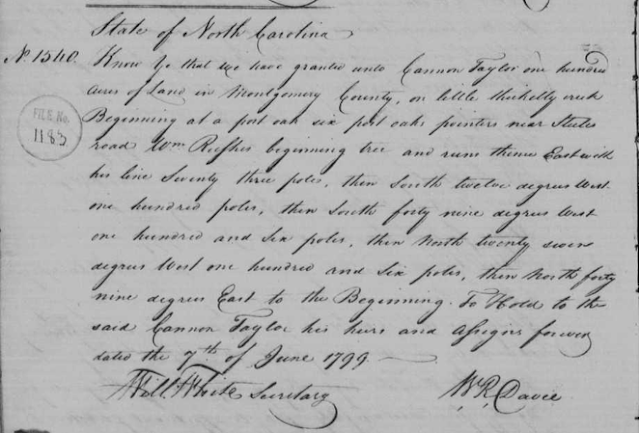 State of North Carolina
No. 1540. Know Ye that we have granted unto Cannon Taylor one hundred
acres of Land in Montgomery County, on little creek
Beginning at a post oak six post oaks pointers near
road Wm beginning tree and runs thence East with
his line Seventy three poles, then South twelve degrees West
one hundred poles, then South forty nine degrees West
one hundred and Six poles, then North twenty seven
degrees West one hundred and Six poles, then North forty
nine degrees East to the Beginning. To Hold to the
said Cannon Taylor his heirs and Assigns forever
dated the 7th of June 1799
Will White Secretary
W. R. Davie
FILE No.
1183